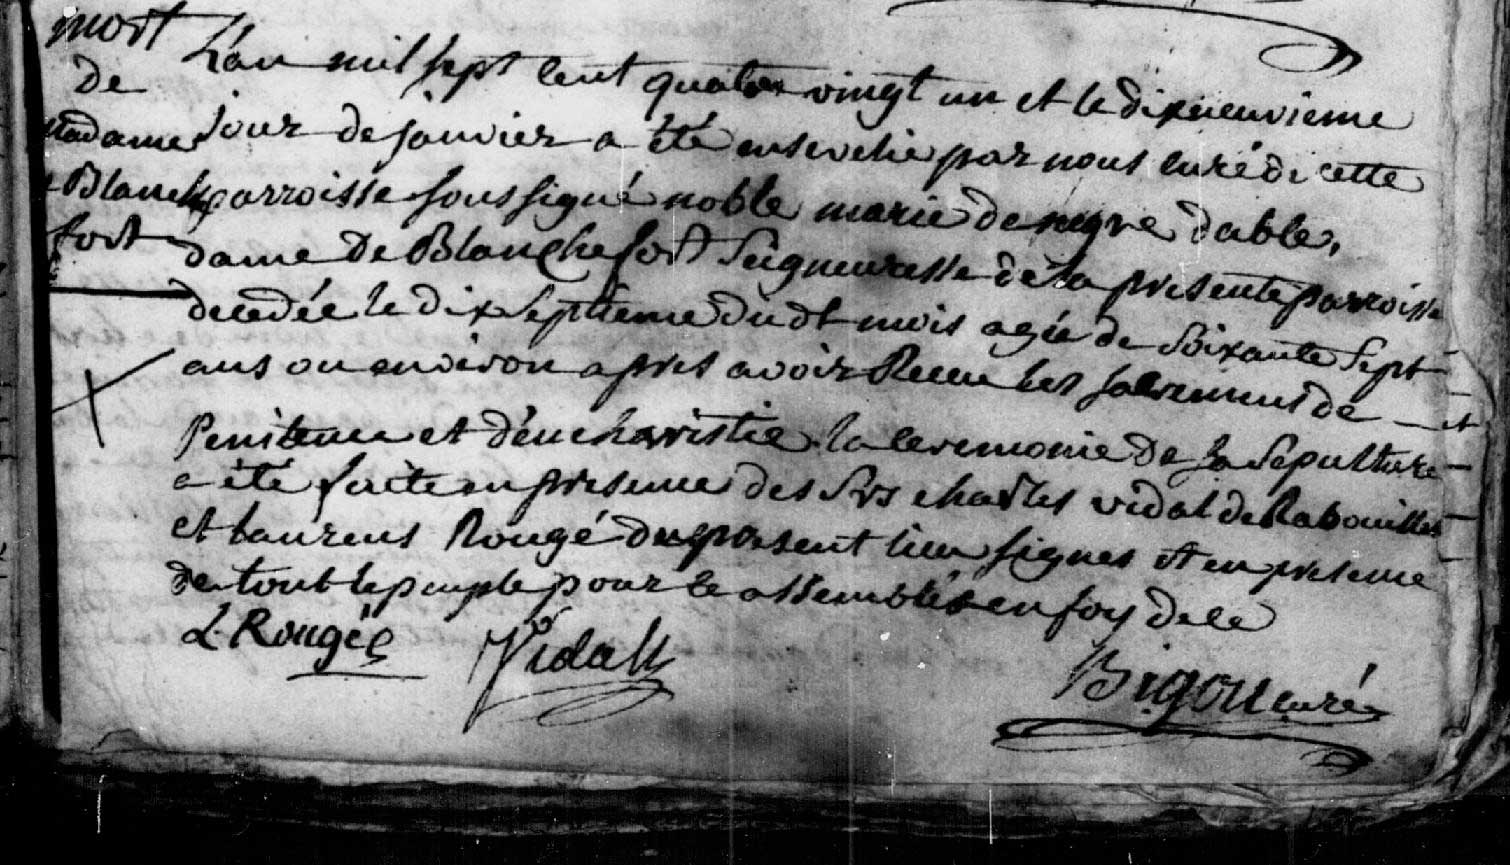 mort
de
madame
Blanche
fort
L'an mil sept cent quatre vingt un et le dixneuvieme
jour de janvier a été ensevelie par nous curé de cette
parroisse soussigné noble marie de negre dable,
dame de Blanchefort Seigneuresse de la presente parroisse
decedée le dix septieme dudt mois agée de soixante sept
ans ou environ apres avoir Receu les sacremens de
Penitence et d'eucharistie la ceremonie de sa sepulture
a été faite en presence des Srs charles vidal de Rabouilles
et Laurens Rougé du present lieu signes et en presence
de tout le peuple pour ce assemblés en foy de ce
L. Rougé Vidal Bigou curé